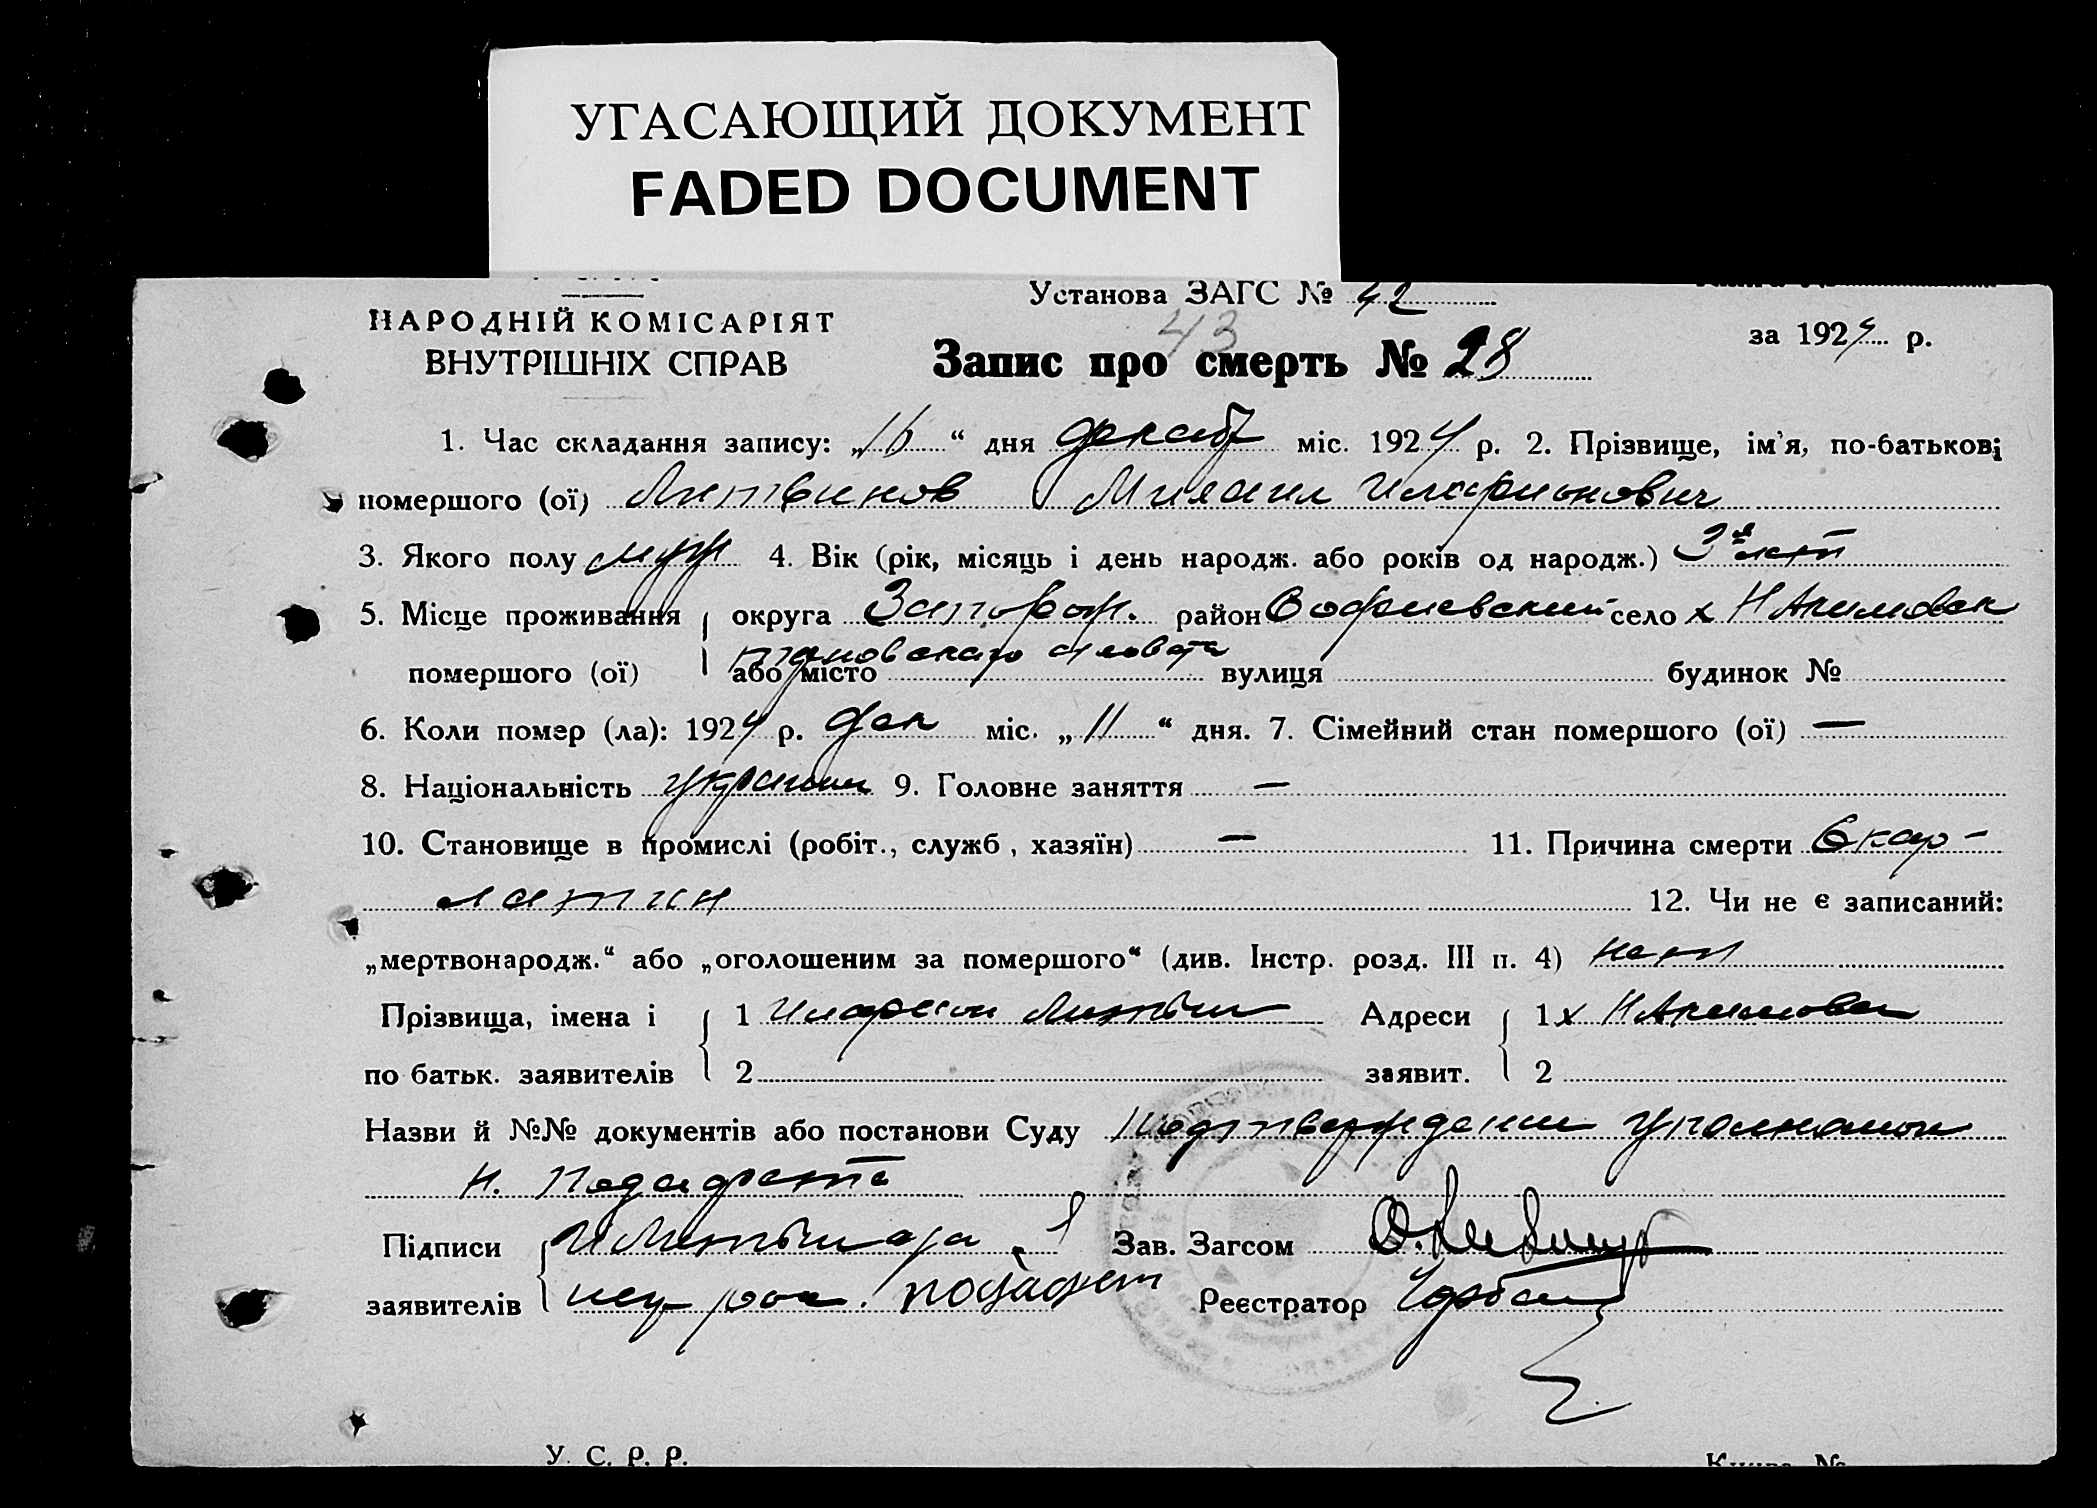 УГАСАЮЩИЙ ДОКУМЕНТ
FADED DOCUMENT
Установа ЗАГС № 42
НАРОДНІЙ КОМІСАРІЯТ
ВНУТРІШНІХ СПРАВ
43
за 1924 р.
Запис про смерть № 28
1. Час складання запису: „16“ дня декаб міс. 1924 р. 2. Прізвище, ім'я, по-батькові
помершого (ої) Литвинов Михаил Иларионович
3. Якого полу муж 4. Вік (рік, місяць і день народж. або років од народж.) 3 лет
5. Місце проживання округа Запорож. район Софиевский село х Н Акимовка
помершого (ої) або місто сельсовета вулиця будинок №
6. Коли помер (ла): 1924 р. дек міс. „11“ дня. 7. Сімейний стан помершого (ої) —
8. Національність украин 9. Головне заняття —
10. Становище в промислі (робіт., служб, хазяїн) — 11. Причина смерти Скар-
латин
12. Чи не є записаний:
„мертвонародж.“ або „оголошеним за помершого“ (див. Інстр. розд. III п. 4) нет
Прізвища, імена і 1 Иларион Литвин Адреси 1 х Н Акимовка
по батьк. заявителів 2 заявит. 2
Назви й №№ документів або постанови Суду Подтверждение
Підписи Зав. Загсом
заявителів Реєстратор
У. С. Р. Р.
Книга №